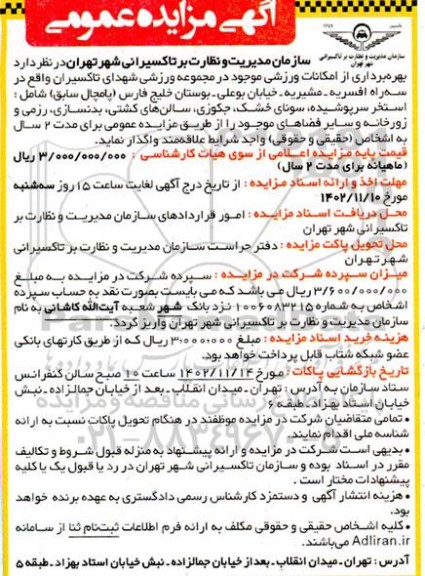 آگهی مزایده عمومی
سازمان مدیریت و نظارت بر تاکسیرانی شهر تهران
سازمان مدیریت و نظارت بر تاکسیرانی شهر تهران در نظر دارد
بهره‌برداری از امکانات ورزشی موجود در مجموعه ورزشی شهدای تاکسیران واقع در
سه‌راه افسریه ـ مشیریه ـ خیابان بوعلی ـ بوستان خلیج فارس (پامچال سابق) شامل :
استخر سرپوشیده، سونای خشک، جکوزی، سالن‌های کشتی، بدنسازی، رزمی و
زورخانه و سایر فضاهای موجود را از طریق مزایده عمومی برای مدت ۲ سال
به اشخاص (حقیقی و حقوقی) واجد شرایط علاقه‌مند واگذار نماید.
قیمت پایه مزایده اعلامی از سوی هیات کارشناسی : ۳/۰۰۰/۰۰۰/۰۰۰ ریال
(ماهیانه برای مدت ۲ سال)
مهلت اخذ و ارائه اسناد مزایده : از تاریخ درج آگهی لغایت ساعت ۱۵ روز سه‌شنبه
مورخ ۱۴۰۲/۱۱/۱۰
محل دریافت اسناد مزایده : امور قراردادهای سازمان مدیریت و نظارت بر
تاکسیرانی شهر تهران
محل تحویل پاکت مزایده : دفتر حراست سازمان مدیریت و نظارت بر تاکسیرانی
شهر تهران
میزان سپرده شرکت در مزایده : سپرده شرکت در مزایده به مبلغ
۳/۶۰۰/۰۰۰/۰۰۰ ریال می باشد که می بایست بصورت نقد به حساب سپرده
اشخاص به شماره ۱۰۰۶۰۸۳۲۱۵ نزد بانک شهر شعبه آیت‌الله کاشانی به نام
سازمان مدیریت و نظارت بر تاکسیرانی شهر تهران واریز گردد.
هزینه خرید اسناد مزایده : مبلغ ۳۰۰۰۰۰۰ ریال که از طریق کارتهای بانکی
عضو شبکه شتاب قابل پرداخت خواهد بود.
تاریخ بازگشایی پاکات : مورخ ۱۴۰۲/۱۱/۱۴ ساعت ۱۰ صبح سالن کنفرانس
ستاد سازمان به آدرس : تهران ـ میدان انقلاب ـ بعد از خیابان جمالزاده ـ نبش
خیابان استاد بهزاد ـ طبقه ۶
• تمامی متقاضیان شرکت در مزایده موظفند در هنگام تحویل پاکات نسبت به ارائه
شناسه ملی اقدام نمایند.
• بدیهی است شرکت در مزایده و ارائه پیشنهاد به منزله قبول شروط و تکالیف
مقرر در اسناد بوده و سازمان تاکسیرانی شهر تهران در رد یا قبول یک یا کلیه
پیشنهادات مختار است .
• هزینه انتشار آگهی و دستمزد کارشناس رسمی دادگستری به عهده برنده خواهد
بود.
• کلیه اشخاص حقیقی و حقوقی مکلف به ارائه فرم اطلاعات ثبت‌نام ثنا از سامانه
Adliran.ir می‌باشند.
آدرس : تهران ـ میدان انقلاب ـ بعد از خیابان جمالزاده ـ نبش خیابان استاد بهزاد ـ طبقه ۵